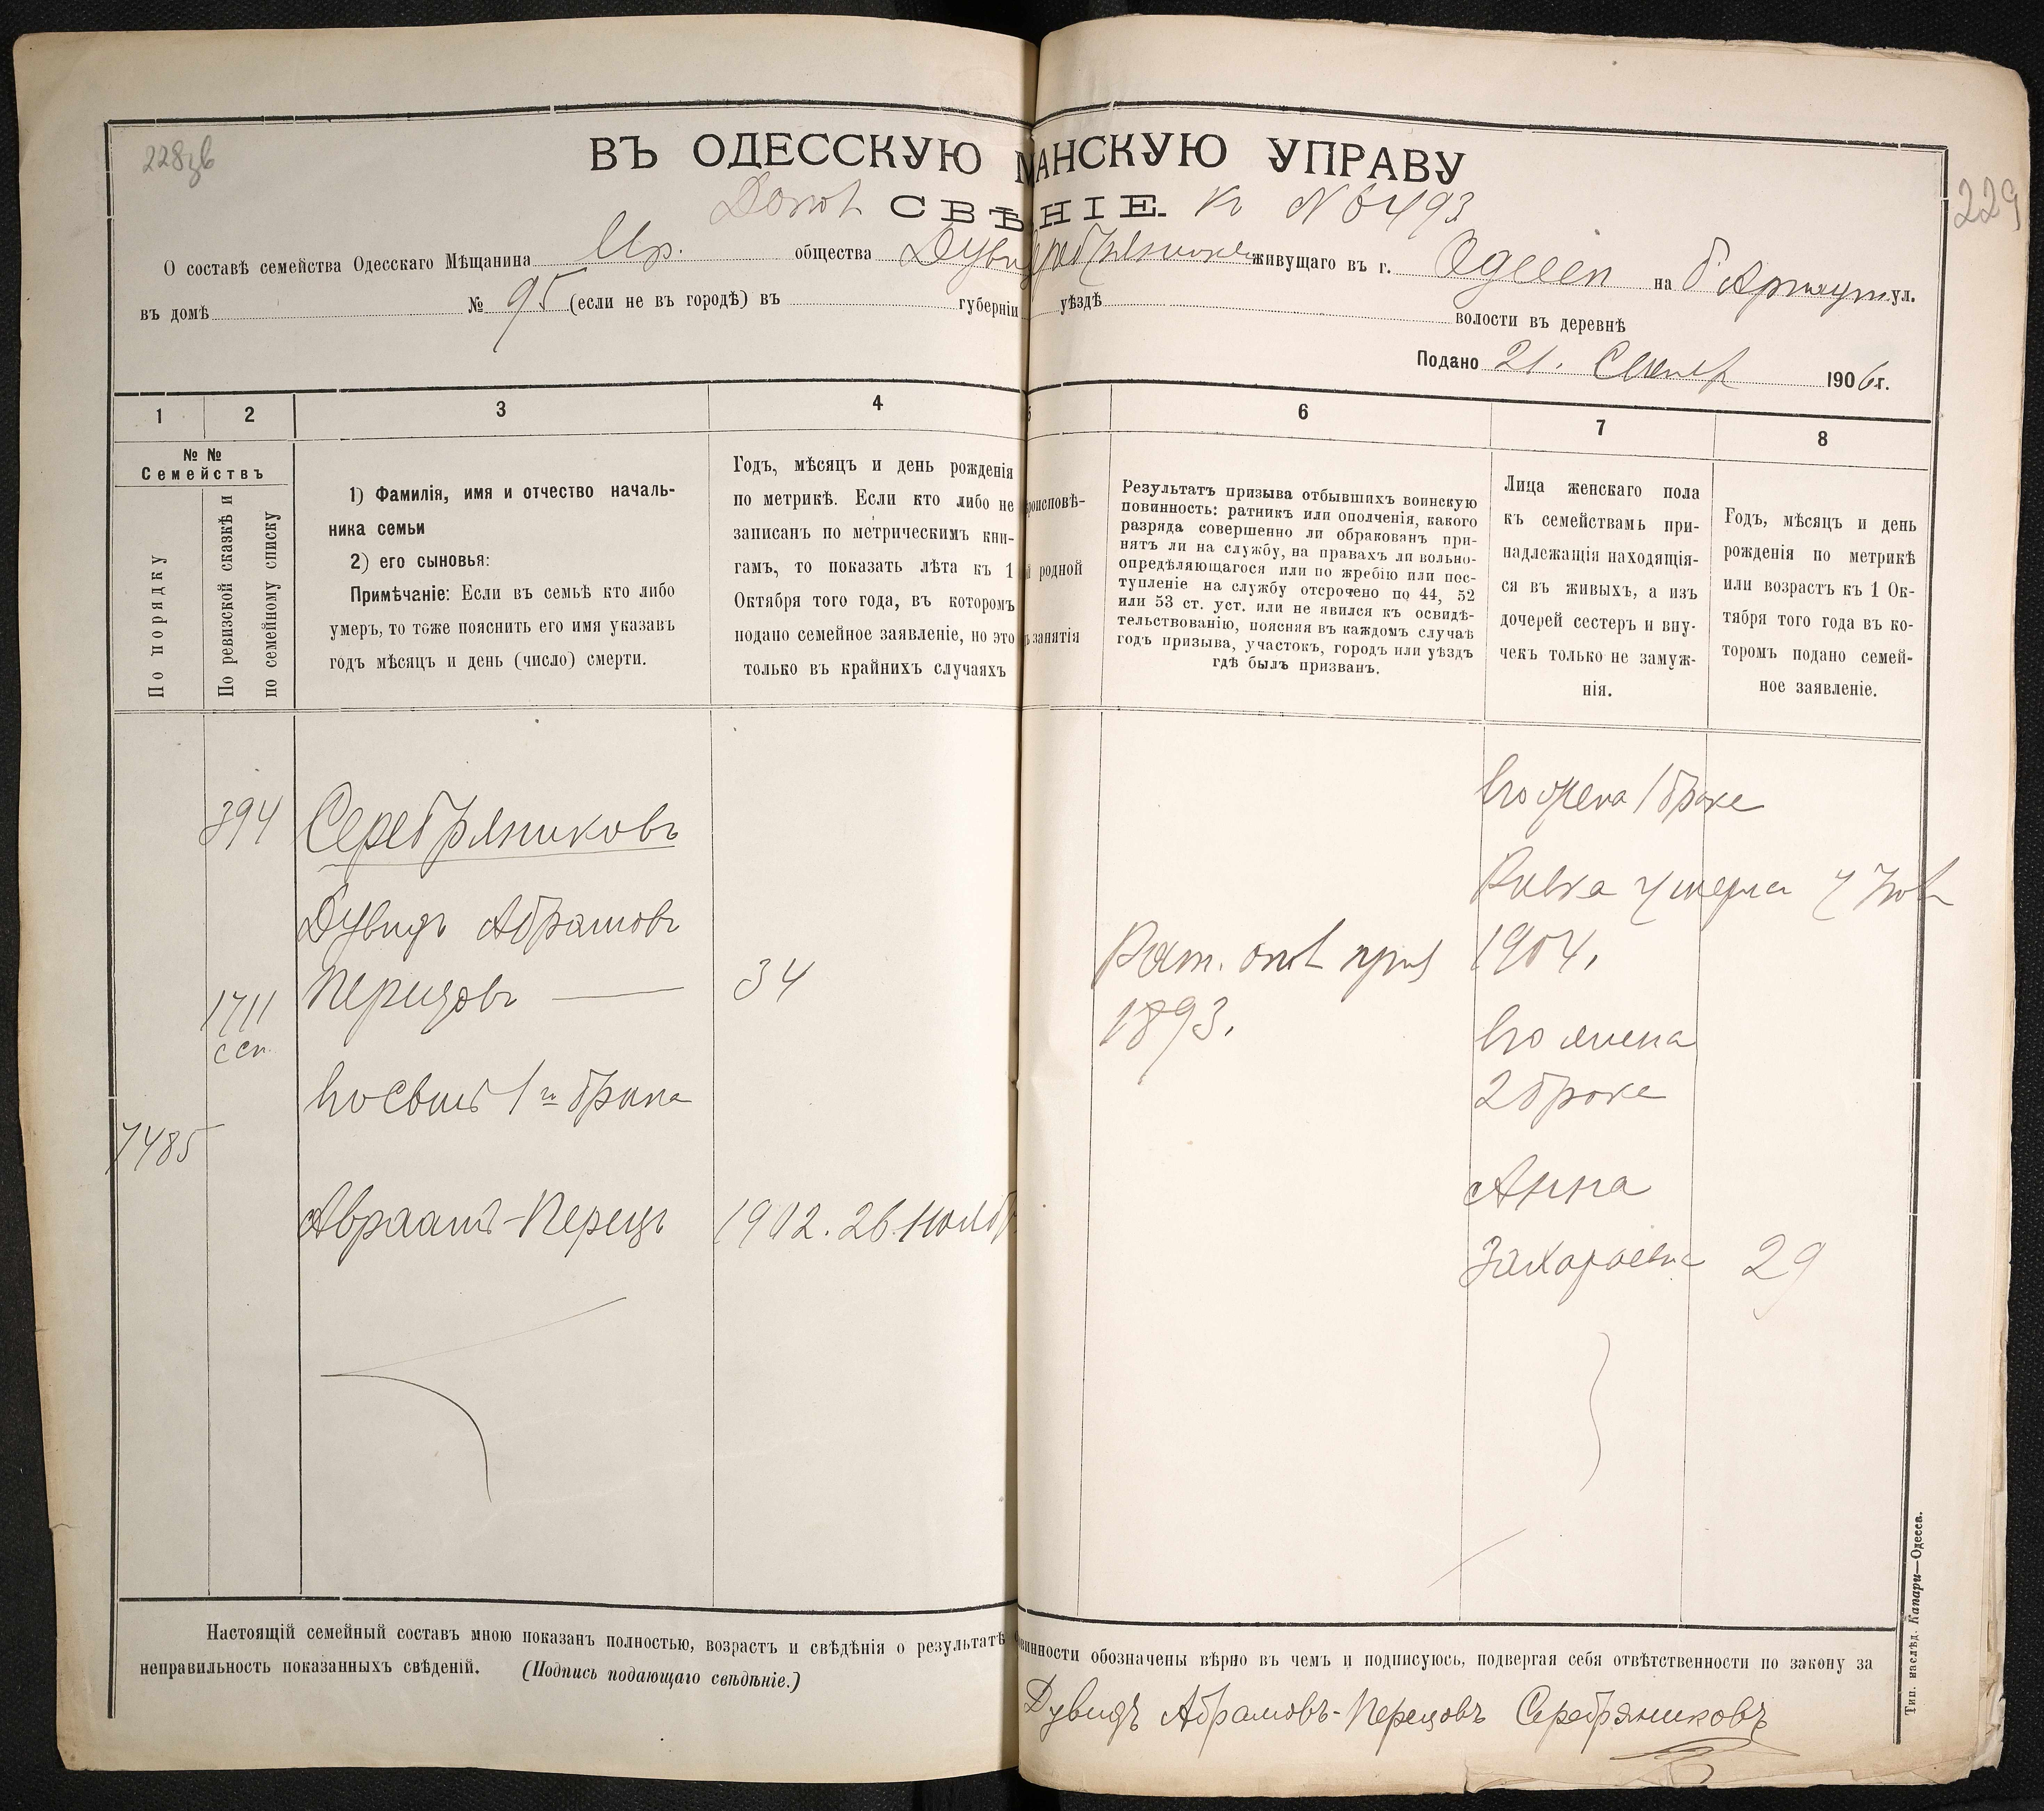 228зв
229
ВЪ ОДЕССКУЮ МѢЩАНСКУЮ УПРАВУ
Допол СВѢ НІЕ. К № 6493
О составѣ семейства Одесскаго Мѣщанина общества Дувид Серебряникова живущаго въ г. Одессѣ на Б Арнаут. ул.
въ домѣ № 95 (если не въ городѣ) въ губерніи уѣздѣ волости въ деревнѣ
Подано 21. Сентяб 1906 г.
1 2 3 4 5 6 7 8
№ №
Семействъ
По порядку
По ревизской сказкѣ и
по семейному списку
1) Фамилія, имя и отчество началь-
ника семьи
2) его сыновья:
Примѣчаніе: Если въ семьѣ кто либо
умеръ, то тоже пояснить его имя указавъ
годъ мѣсяцъ и день (число) смерти.
Годъ, мѣсяцъ и день рожденія
по метрикѣ. Если кто либо не
записанъ по метрическимъ кни-
гамъ, то показать лѣта къ 1
Октября того года, въ которомъ
подано семейное заявленіе, но это
только въ крайнихъ случаяхъ
роисповѣ-
й родной
ъ занятія
Результатъ призыва отбывшихъ воинскую
повинность: ратникъ или ополченія, какого
разряда совершенно ли обракованъ при-
нятъ ли на службу, на правахъ ли вольно-
опредѣляющагося или по жребію или пос-
тупленіе на службу отсрочено по 44, 52
или 53 ст. уст. или не явился къ освидѣ-
тельствованію, поясняя въ каждомъ случаѣ
годъ призыва, участокъ, городъ или уѣздъ
гдѣ былъ призванъ.
Лица женскаго пола
къ семействамъ при-
надлежащія находящія-
ся въ живыхъ, а изъ
дочерей сестеръ и вну-
чекъ только не замуж-
нія.
Годъ, мѣсяцъ и день
рожденія по метрикѣ
или возрастъ къ 1 Ок-
тября того года въ ко-
торомъ подано семей-
ное заявленіе.
394 Серебряниковъ
Дувидъ Абрамовъ
1711 Перецовъ — 34
ссп.
Его сынъ 1го брака
7485
Авраамъ-Перецъ 1902. 26. Ноябр
Рат. опол приз
1893.
Его жена 1 брака
Ривка умерла 7 Нов
1904.
Его жена
2 брака
Анна
Захароевна 29
Настоящій семейный составъ мною показанъ полностью, возрастъ и свѣдѣнія о результатѣ винности обозначены вѣрно въ чемъ и подписуюсь, подвергая себя отвѣтственности по закону за
неправильность показанныхъ свѣденій. (Подпись подающаго свѣдѣніе.)
Дувидъ Абрамовъ-Перецовъ Серебряниковъ
Тип. наслѣд. Капари—Одесса.